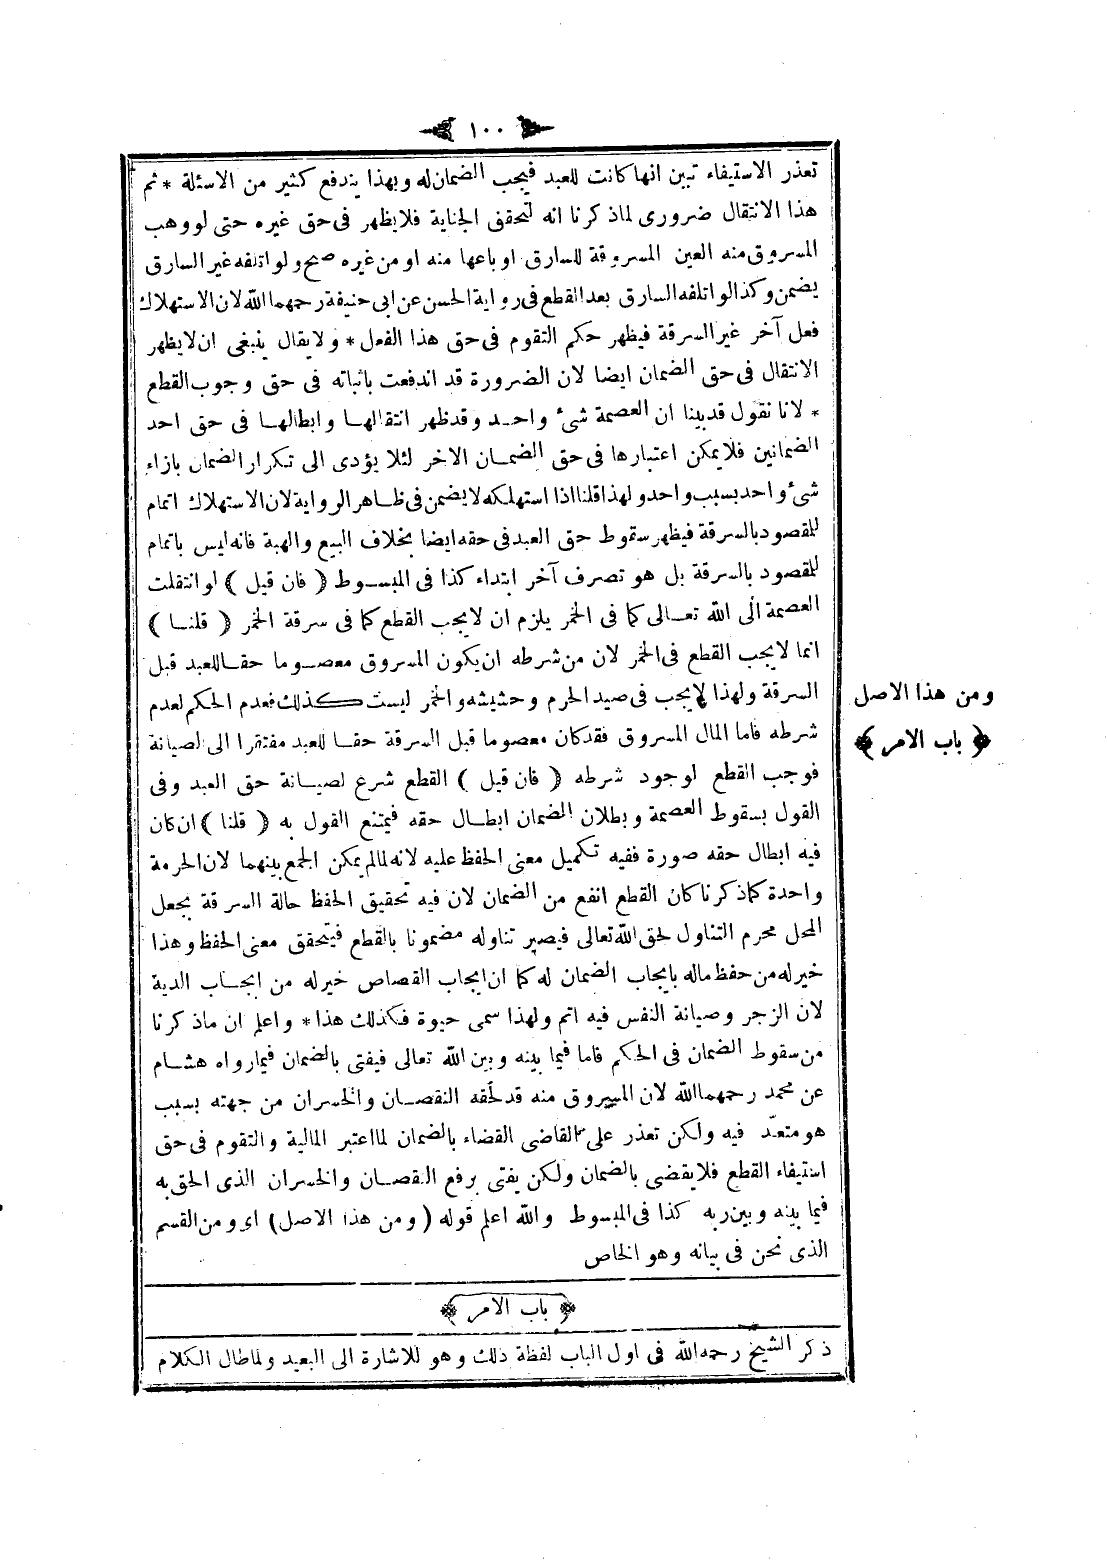 ١٠٠
تعذر الاستيفاء تبين انها كانت للعبد فيجب الضمان له وبهذا يندفع كثير من الاسئلة * ثم
هذا الانتقال ضرورى لماذ كرنا انه لتحقق الجناية فلا يظهر فى حق غيره حتى لو وهب
المسروق منه العين المسروقة للسارق او باعها منه او من غيره صح ولو اتلفه غير السارق
يضمن وكذا لو اتلفه السارق بعد القطع فى رواية الحسن عن ابى حنيفة رحمهما الله لان الاستهلاك
فعل آخر غير السرقة فيظهر حكم التقوم فى حق هذا الفعل * ولا يقال ينبغى ان لا يظهر
الانتقال فى حق الضمان ايضا لان الضرورة قد اندفعت باثباته فى حق وجوب القطع
* لانا نقول قد بينا ان العصمة شئ واحد وقد ظهر انتقالها وابطالها فى حق احد
الضمانين فلا يمكن اعتبارها فى حق الضمان الاخر لئلا يؤدى الى تكرار الضمان بازاء
شئ واحد بسبب واحد ولهذا قلنا اذا استهلكه لا يضمن فى ظاهر الرواية لان الاستهلاك اتمام
للمقصود بالسرقة فيظهر سقوط حق العبد فى حقه ايضا بخلاف البيع والهبة فانه ليس باتمام
للمقصود بالسرقة بل هو تصرف آخر ابتداء كذا فى المبسوط ( فان قيل ) لو انتقلت
العصمة الى الله تعالى كما فى الخمر يلزم ان لا يجب القطع كما فى سرقة الخمر ( قلنا )
انما لا يجب القطع فى الخمر لان من شرطه ان يكون المسروق معصوما حقا للعبد قبل
السرقة ولهذا لا يجب فى صيد الحرم وحشيشه والخمر ليست كذلك فعدم الحكم لعدم
شرطه فاما المال المسروق فقد كان معصوما قبل السرقة حقا للعبد مفتقرا الى الصيانة
فوجب القطع لوجود شرطه ( فان قيل ) القطع شرع لصيانة حق العبد وفى
القول بسقوط العصمة وبطلان الضمان ابطال حقه فيمتنع القول به ( قلنا ) ان كان
فيه ابطال حقه صورة ففيه تكميل معنى الحفظ عليه لانه لما لم يمكن الجمع بينهما لان الحرمة
واحدة كما ذكرنا كان القطع انفع من الضمان لان فيه تحقيق الحفظ حالة السرقة بجعل
المحل محرم التناول لحق الله تعالى فيصير تناوله مضمونا بالقطع فيتحقق معنى الحفظ وهذا
خير له من حفظ ماله بايجاب الضمان له كما ان ايجاب القصاص خير له من ايجاب الدية
لان الزجر وصيانة النفس فيه اتم ولهذا سمى حيوة فكذلك هذا * واعلم ان ماذ كرنا
من سقوط الضمان فى الحكم فاما فيما بينه وبين الله تعالى فيفتى بالضمان فيما رواه هشام
عن محمد رحمهما الله لان المسروق منه قد لحقه النقصان والخسران من جهته بسبب
هو متعد فيه ولكن تعذر على القاضى القضاء بالضمان لما اعتبر المالية والتقوم فى حق
استيفاء القطع فلا يقضى بالضمان ولكن يفتى برفع النقصان والخسران الذى الحق به
فيما بينه وبين ربه كذا فى المبسوط والله اعلم قوله ( ومن هذا الاصل ) اى ومن القسم
الذى نحن فى بيانه وهو الخاص
ومن هذا الاصل
﴿ باب الامر ﴾
﴿ باب الامر ﴾
ذكر الشيخ رحمه الله فى اول الباب لفظة ذلك وهو للاشارة الى البعيد ولما طال الكلام